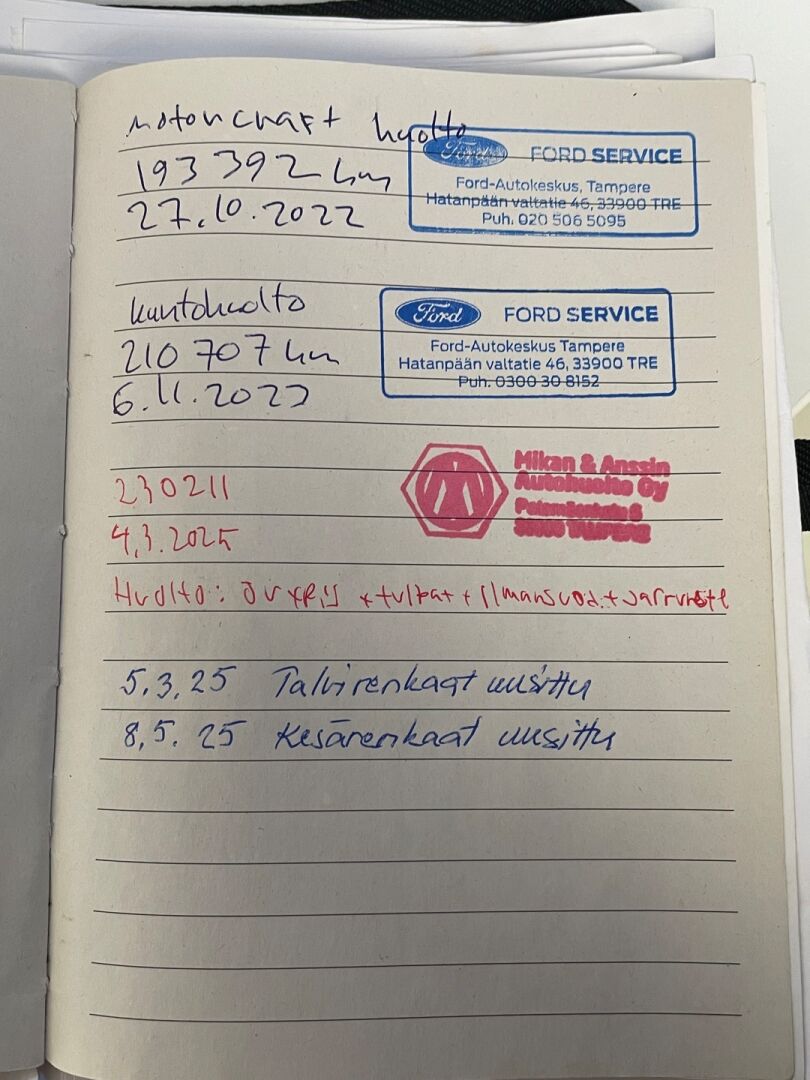 motorcraft huolto
193 392 km
27.10.2022
Ford FORD SERVICE
Ford-Autokeskus, Tampere
Hatanpään valtatie 46, 33900 TRE
Puh. 020 506 5095
kuntohuolto
210 707 km
6.11.2023
Ford FORD SERVICE
Ford-Autokeskus Tampere
Hatanpään valtatie 46, 33900 TRE
Puh. 0300 30 8152
230211
4.3.2025
Mikan & Anssin
Autohuolto Oy
TAMPERE
Huolto: + tulpat + ilmansuod. +
5.3.25 Talvirenkaat uusittu
8.5.25 Kesärenkaat uusittu